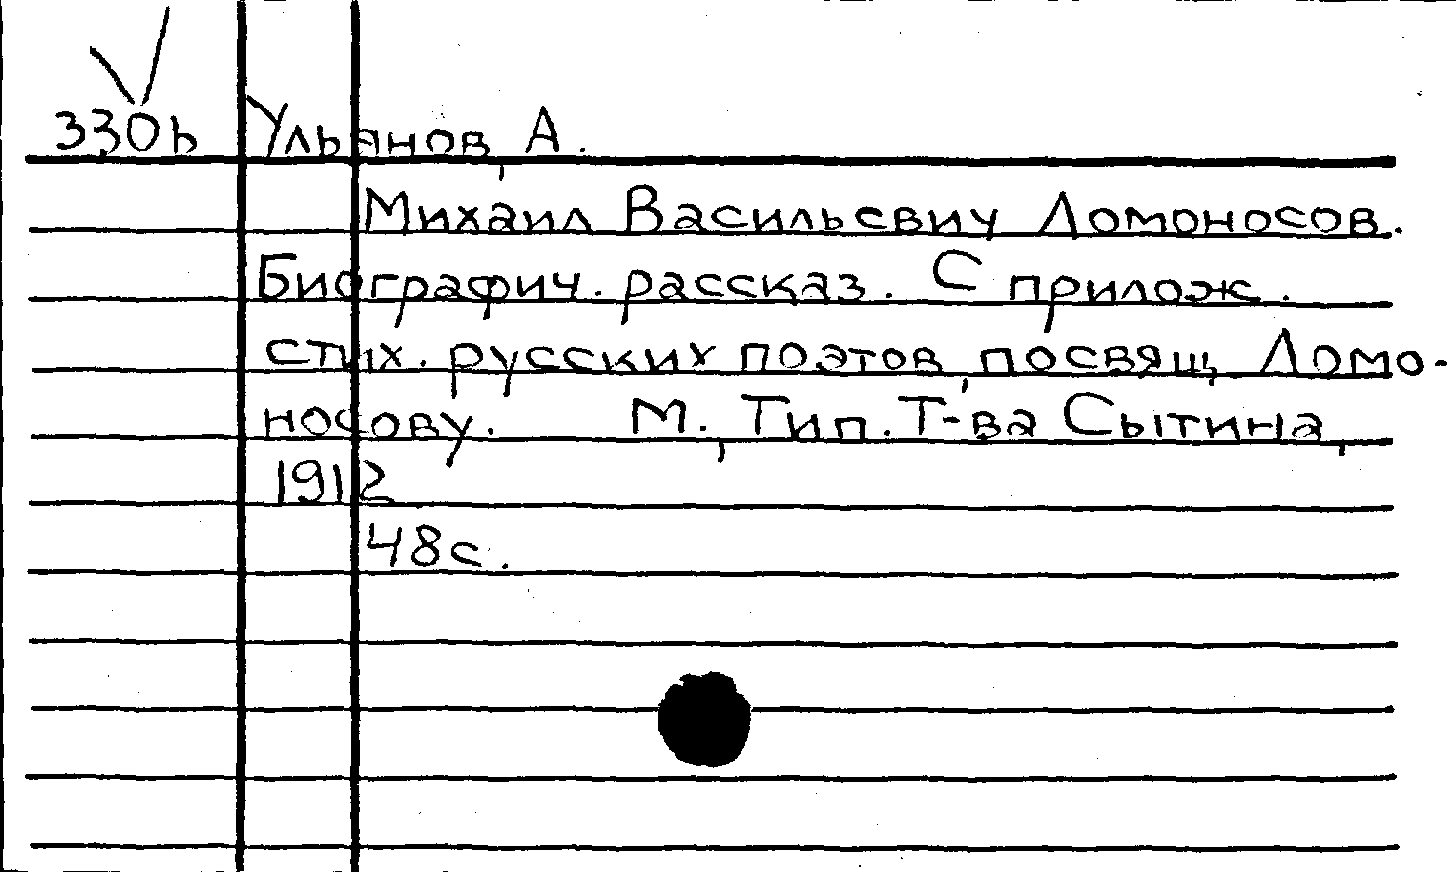 330ь Ульянов, А.
Михаил Васильевич Ломоносов.
Биографич. рассказ. С прилож.
стих. русских поэтов, посвящ. Ломо-
носову. М., Тип. Т-ва Сытина,
1912
48с.